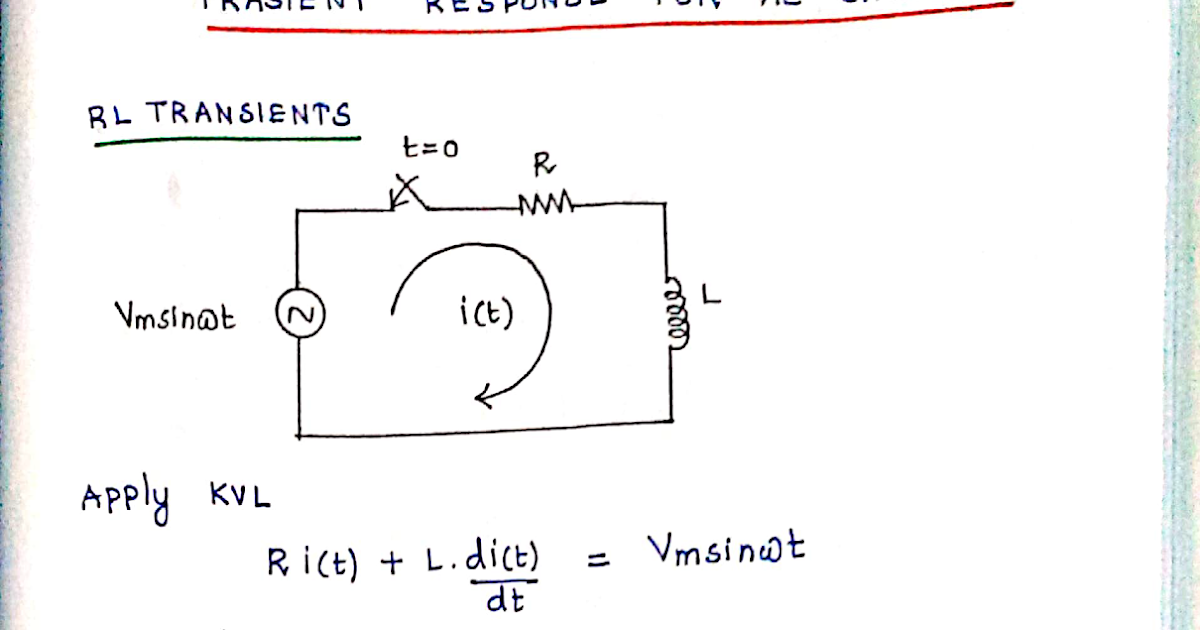 RL TRANSIENTS
t=0
R
Vmsinωt
i(t)
L
Apply KVL
R i(t) + L. di(t)/dt = Vmsinωt